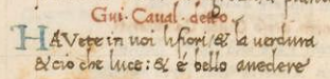 Gui. Caual. detto
HAVete in uoi li fiori, & la uerdura
& cio che luce: & é bello auedere